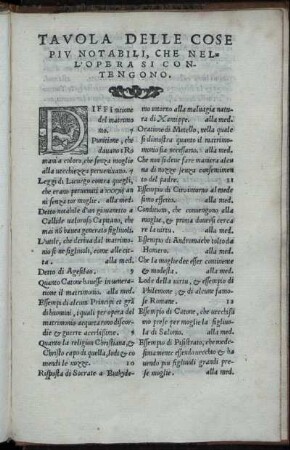 TAVOLA DELLE COSE
PIV NOTABILI, CHE NEL-
L'OPERA SI CON-
TENGONO.
DIFFInitione
del matrimo
nio. 7
Punitione, che
davano i Ro
mani a coloro, che senza moglie
alla vecchiezza pervenivano. 7
Leggi di Licurgo contra quegli,
che erano pervenuti a anni
ni senza tor moglie. alla med.
Detto notabile d'un
Callido naturale Capitano,
mai nō haveva generato figliuoli.
L'utile, che deriva dal matrimo
nio et figliuoli, come alle cit
ta. alla med.
Detto di Agesilao. 9
Quanto Catone havesse in venera-
tione il matrimonio. alla med.
Essempi di alcuni Principi et grā
di huomini, i quali per opera del
matrimonio acquetarono discor-
die & guerre acerbissime. 9
Quanto la religion Christiana &
Christo capo di quella, lodi & co
mendi le nozze. 10
Risposta di Socrate a Euthyde-
mo intorno alla malvagia natu
ra di Xantippe. alla med.
Oratione di Metello, nella quale
si dimostra quanto il matrimo-
nio sia necessario. alla med.
Che non si deve fare maniera alcu
na di nozze senza consentimento
del padre. 11
Essempio di al mede
simo effetto. alla med.
Conditioni, che convengono alla
moglie, & che prima dee cerca-
re la virtu. alla med.
Essempio di Andromache tolto da
Homero. alla med.
Che la moglie dee esser continente
& modesta. alla med.
Lode della virtu, & essempio di
Philemone & di alcune famo-
se Romane. 12
Essempio di Catone, che vecchissi
mo prese per moglie la figliuo-
la di Salonio. alla med.
Essempio di Pisistrato, che mede-
simamente essendo vecchio & ha-
vendo piu figliuoli grandi pre-
se moglie. alla med.